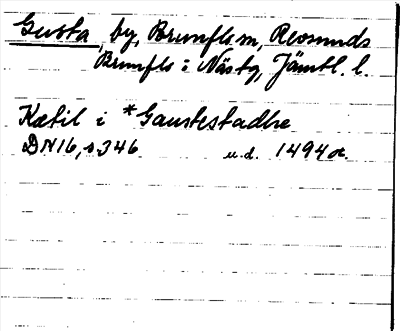 Gusta, by, Brunflo sn, Revsunds
Brunflo i Näs tg, Jämtl. l.
Kætil i *Gaustestadhe
DN 16, s. 346 u.d. 1494 or.